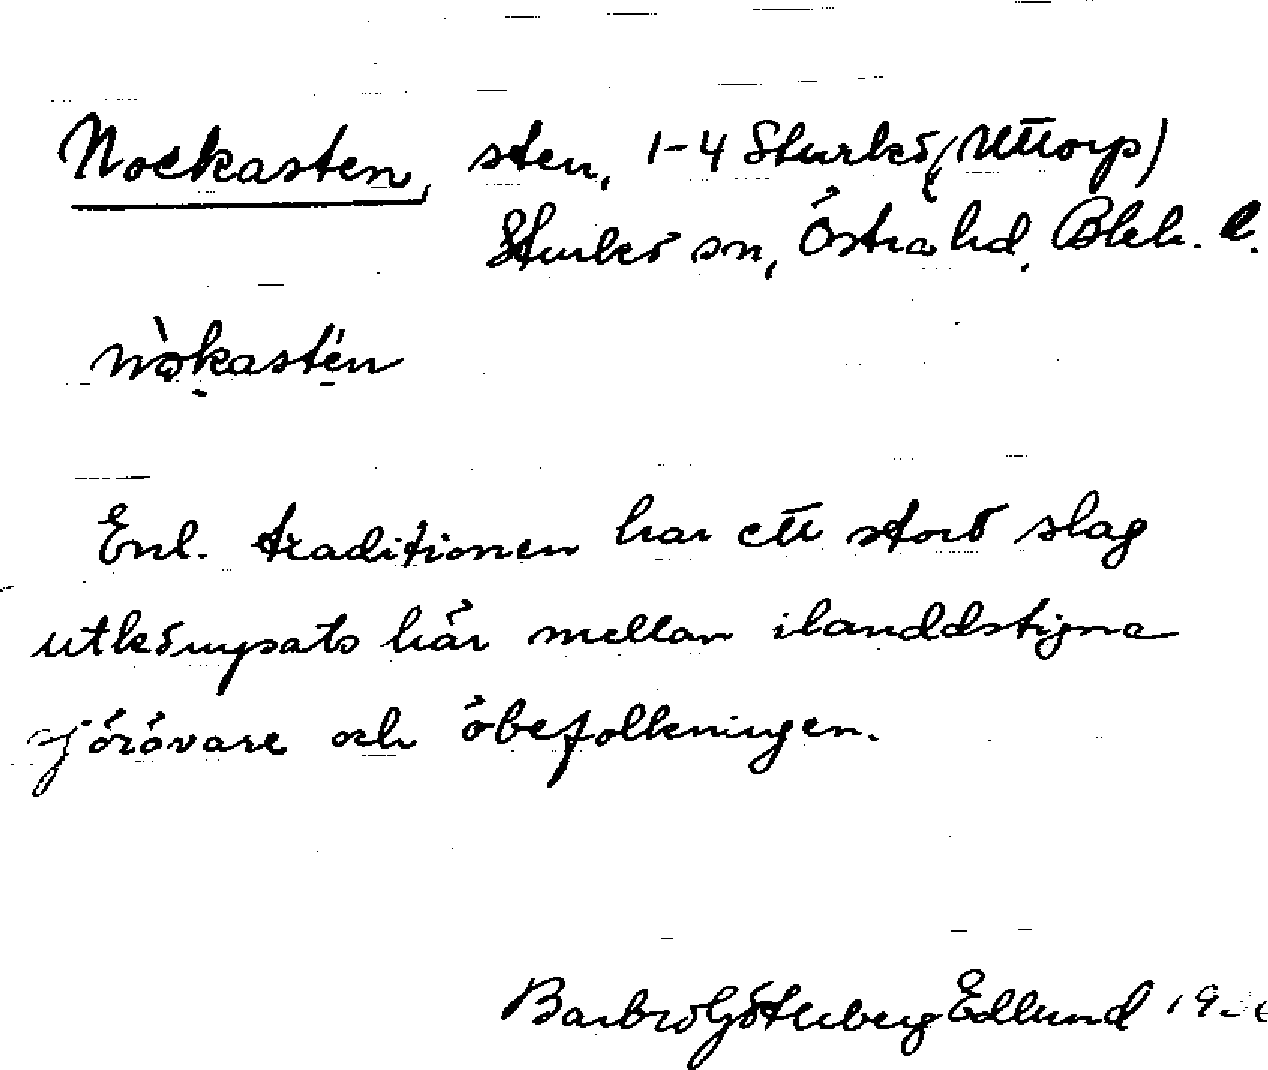 Nockasten, sten, 1-4 Sturkö (Uttorp)
Sturkö sn, Östra hd, Blek. l.
nòkastén
Enl. traditionen har ett stort slag
utkämpats här mellan ilanddstigna
sjörövare och öbefolkningen.
Barbro Göteberg Edlund